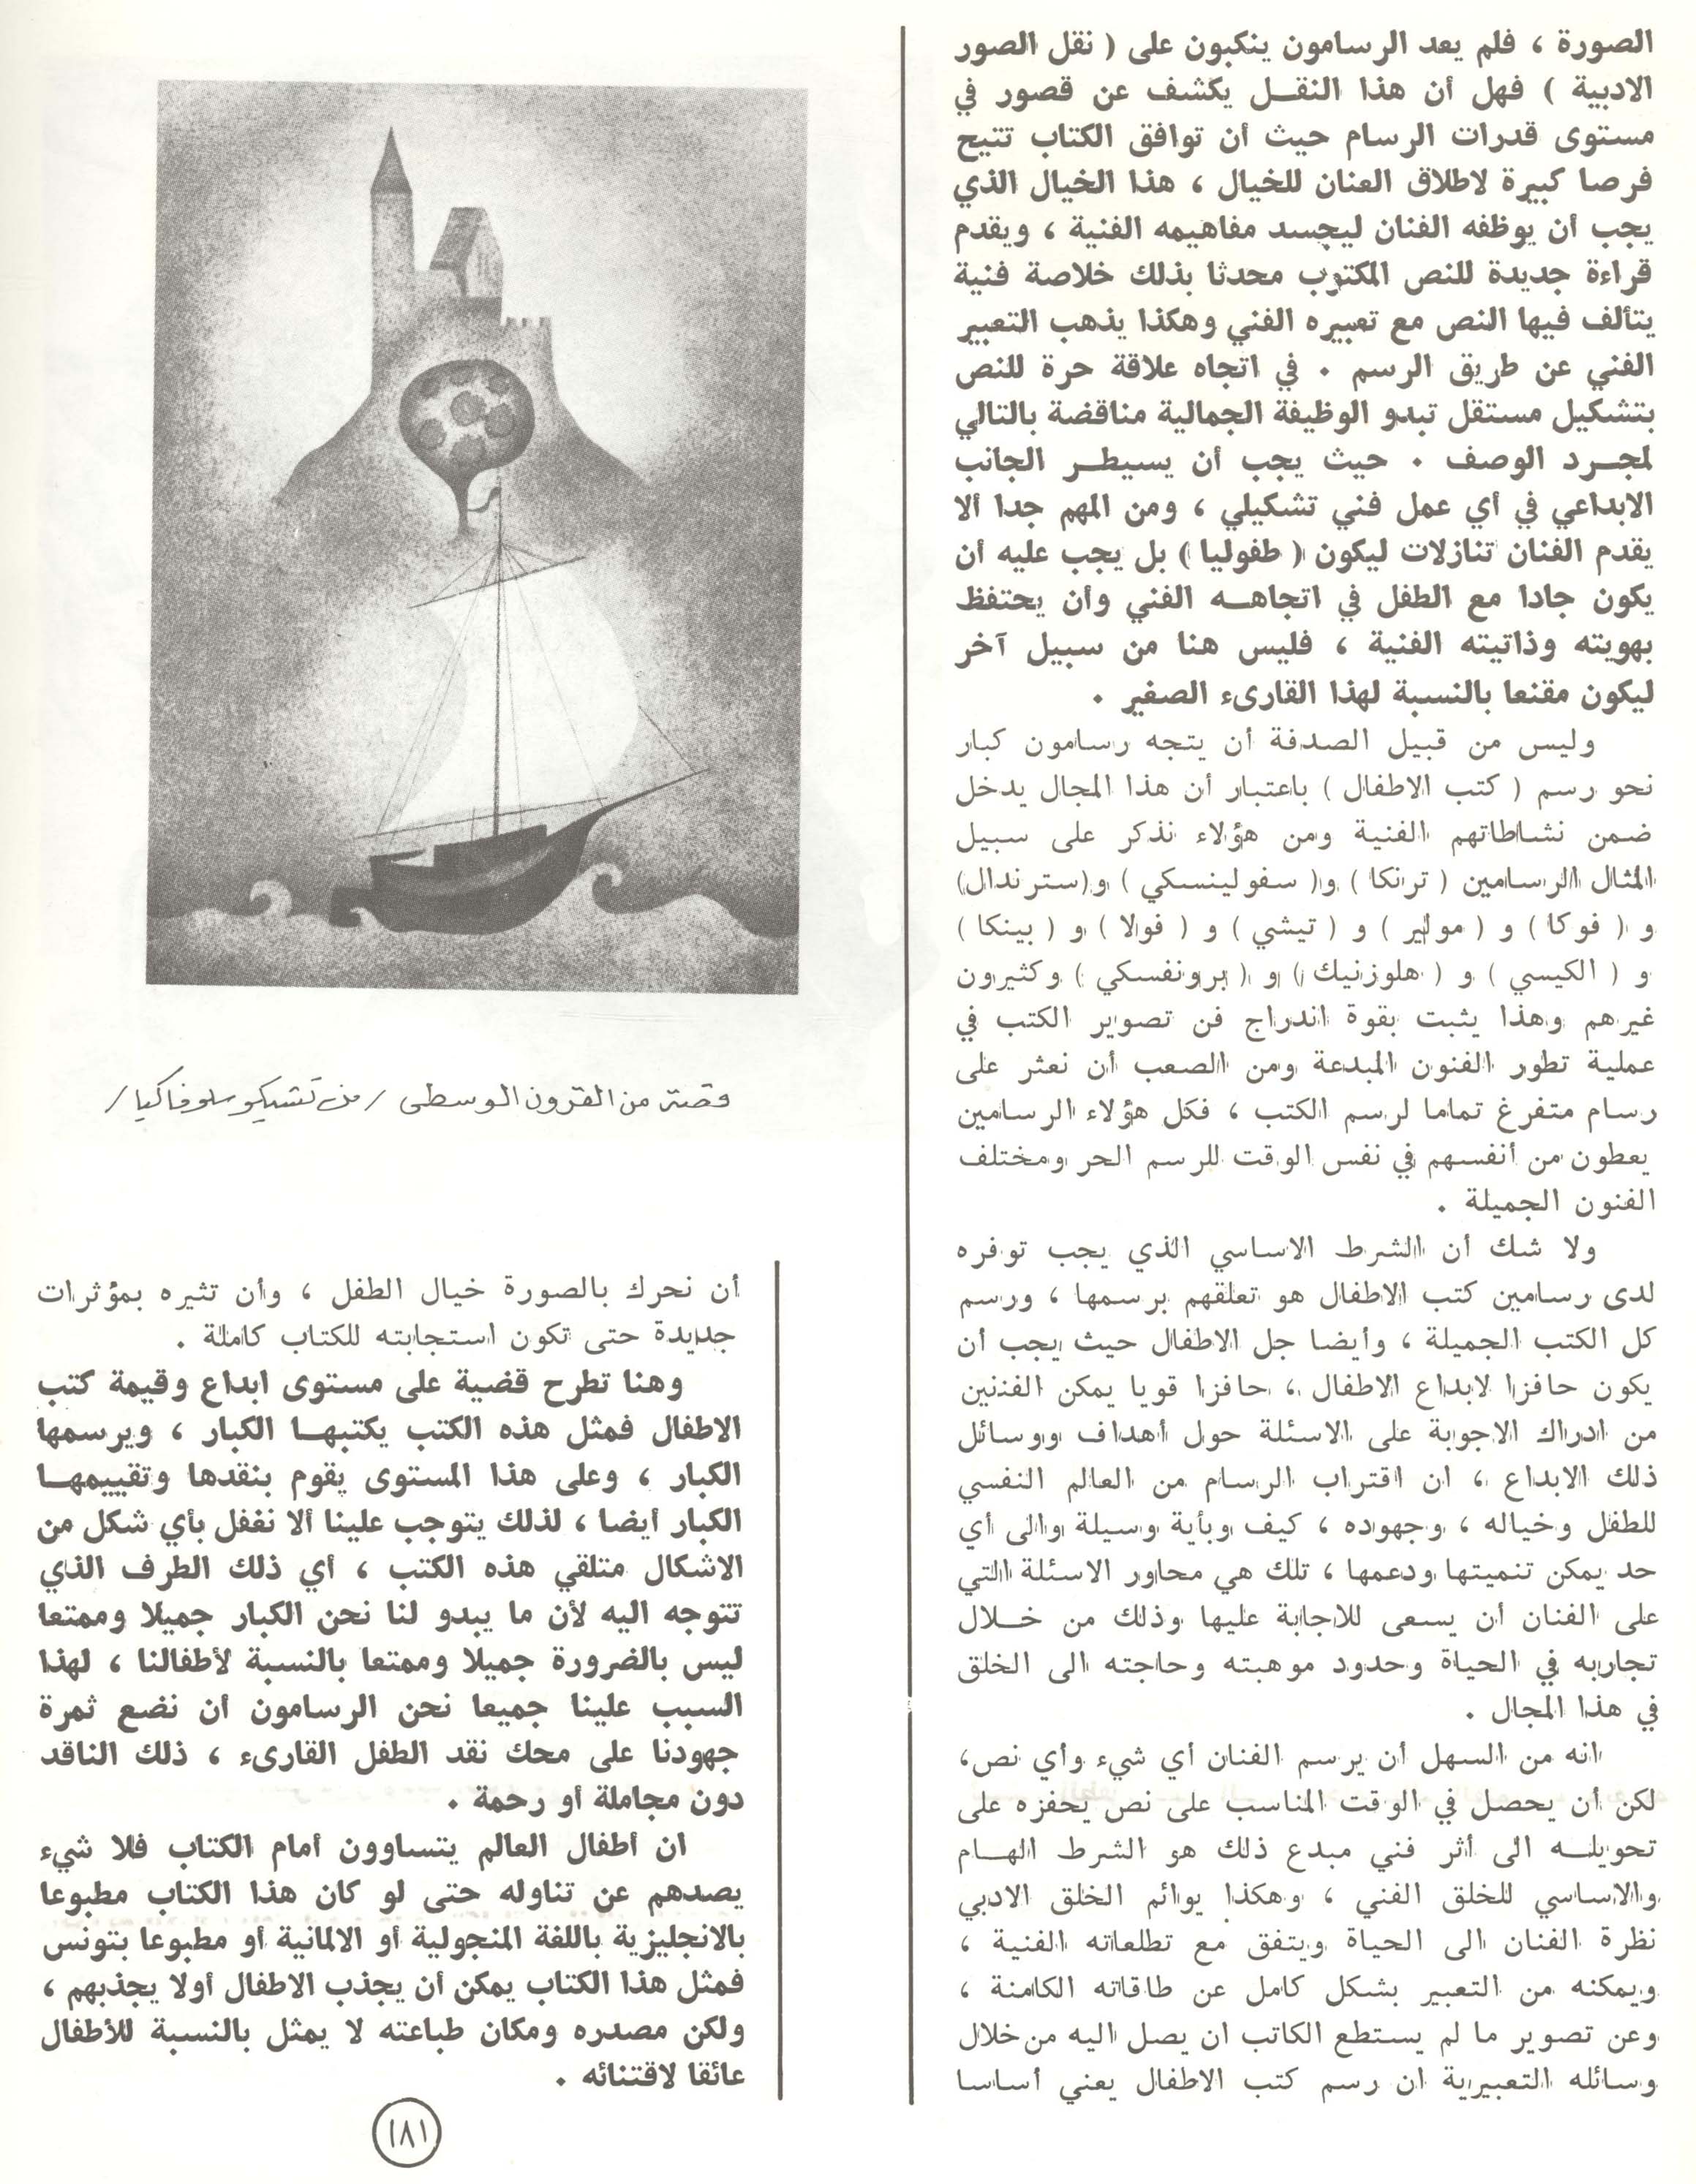 الصورة ، فلم يعد الرسامون ينكبون على ( نقل الصور
الادبية ) فهل أن هذا النقــل يكشف عن قصور في
مستوى قدرات الرسام حيث أن توافق الكتاب تتيح
فرصا كبيرة لاطلاق العنان للخيال ، هذا الخيال الذي
يجب أن يوظفه الفنان ليجسد مفاهيمه الفنية ، ويقدم
قراءة جديدة للنص المكتوب محدثا بذلك خلاصة فنية
يتألف فيها النص مع تعبيره الفني وهكذا يذهب التعبير
الفني عن طريق الرسم . في اتجاه علاقة حرة للنص
بتشكيل مستقل تبدو الوظيفة الجمالية مناقضة بالتالي
لمجــرد الوصف . حيث يجب أن يسيطــر الجانب
الابداعي في أي عمل فني تشكيلي ، ومن المهم جدا ألا
يقدم الفنان تنازلات ليكون ( طفوليا ) بل يجب عليه أن
يكون جادا مع الطفل في اتجاهــه الفني وأن يحتفظ
بهويته وذاتيته الفنية ، فليس هنا من سبيل آخر
ليكون مقنعا بالنسبة لهذا القارىء الصغير .
وليس من قبيل الصدفة أن يتجه رسامون كبار
نحو رسم ( كتب الاطفال ) باعتبار أن هذا المجال يدخل
ضمن نشاطاتهم الفنية ومن هؤلاء نذكر على سبيل
المثال الرسامين ( ترانكا ) و( سفولينسكي ) و(سترندال)
و ( فوكا ) و ( مولير ) و ( تيشي ) و ( فوالا ) و ( بينكا )
و ( الكيسي ) و ( هلوزنيك ) و ( برونفسكي ) وكثيرون
غيرهم وهذا يثبت بقوة اندراج فن تصوير الكتب في
عملية تطور الفنون المبدعة ومن الصعب أن نعثر على
رسام متفرغ تماما لرسم الكتب ، فكل هؤلاء الرسامين
يعطون من أنفسهم في نفس الوقت للرسم الحر ومختلف
الفنون الجميلة .
ولا شك أن الشرط الاساسي الذي يجب توفره
لدى رسامين كتب الاطفال هو تعلقهم برسمها ، ورسم
كل الكتب الجميلة ، وأيضا جل الاطفال حيث يجب أن
يكون حافزا لابداع الاطفال ، حافزا قويا يمكن الفننين
من ادراك الاجوبة على الاسئلة حول أهداف ووسائل
ذلك الابداع ، ان اقتراب الرسام من العالم النفسي
للطفل وخياله ، وجهوده ، كيف وبأية وسيلة والى أي
حد يمكن تنميتها ودعمها ، تلك هي محاور الاسئلة التي
على الفنان أن يسعى للاجابة عليها وذلك من خــلال
تجاربه في الحياة وحدود موهبته وحاجته الى الخلق
في هذا المجال .
انه من السهل أن يرسم الفنان أي شيء وأي نص،
لكن أن يحصل في الوقت المناسب على نص يحفزه على
تحويلــه الى أثر فني مبدع ذلك هو الشرط الهــام
والاساسي للخلق الفني ، وهكذا يوائم الخلق الادبي
نظرة الفنان الى الحياة ويتفق مع تطلعاته الفنية ،
ويمكنه من التعبير بشكل كامل عن طاقاته الكامنة ،
وعن تصوير ما لم يستطع الكاتب ان يصل اليه من خلال
وسائله التعبيرية ان رسم كتب الاطفال يعني أساسا
قصة من القرون الوسطى / من تشيكوسلوفاكيا /
أن نحرك بالصورة خيال الطفل ، وأن تثيره بمؤثرات
جديدة حتى تكون استجابته للكتاب كاملة .
وهنا تطرح قضية على مستوى ابداع وقيمة كتب
الاطفال فمثل هذه الكتب يكتبهــا الكبار ، ويرسمها
الكبار ، وعلى هذا المستوى يقوم بنقدها وتقييمهــا
الكبار أيضا ، لذلك يتوجب علينا ألا نغفل بأي شكل من
الاشكال متلقي هذه الكتب ، أي ذلك الطرف الذي
تتوجه اليه لأن ما يبدو لنا نحن الكبار جميلا وممتعا
ليس بالضرورة جميلا وممتعا بالنسبة لأطفالنا ، لهذا
السبب علينا جميعا نحن الرسامون أن نضع ثمرة
جهودنا على محك نقد الطفل القارىء ، ذلك الناقد
دون مجاملة أو رحمة .
ان أطفال العالم يتساوون أمام الكتاب فلا شيء
يصدهم عن تناوله حتى لو كان هذا الكتاب مطبوعا
بالانجليزية باللغة المنجولية أو الالمانية أو مطبوعا بتونس
فمثل هذا الكتاب يمكن أن يجذب الاطفال أولا يجذبهم ،
ولكن مصدره ومكان طباعته لا يمثل بالنسبة للأطفال
عائقا لاقتنائه .
١٨١